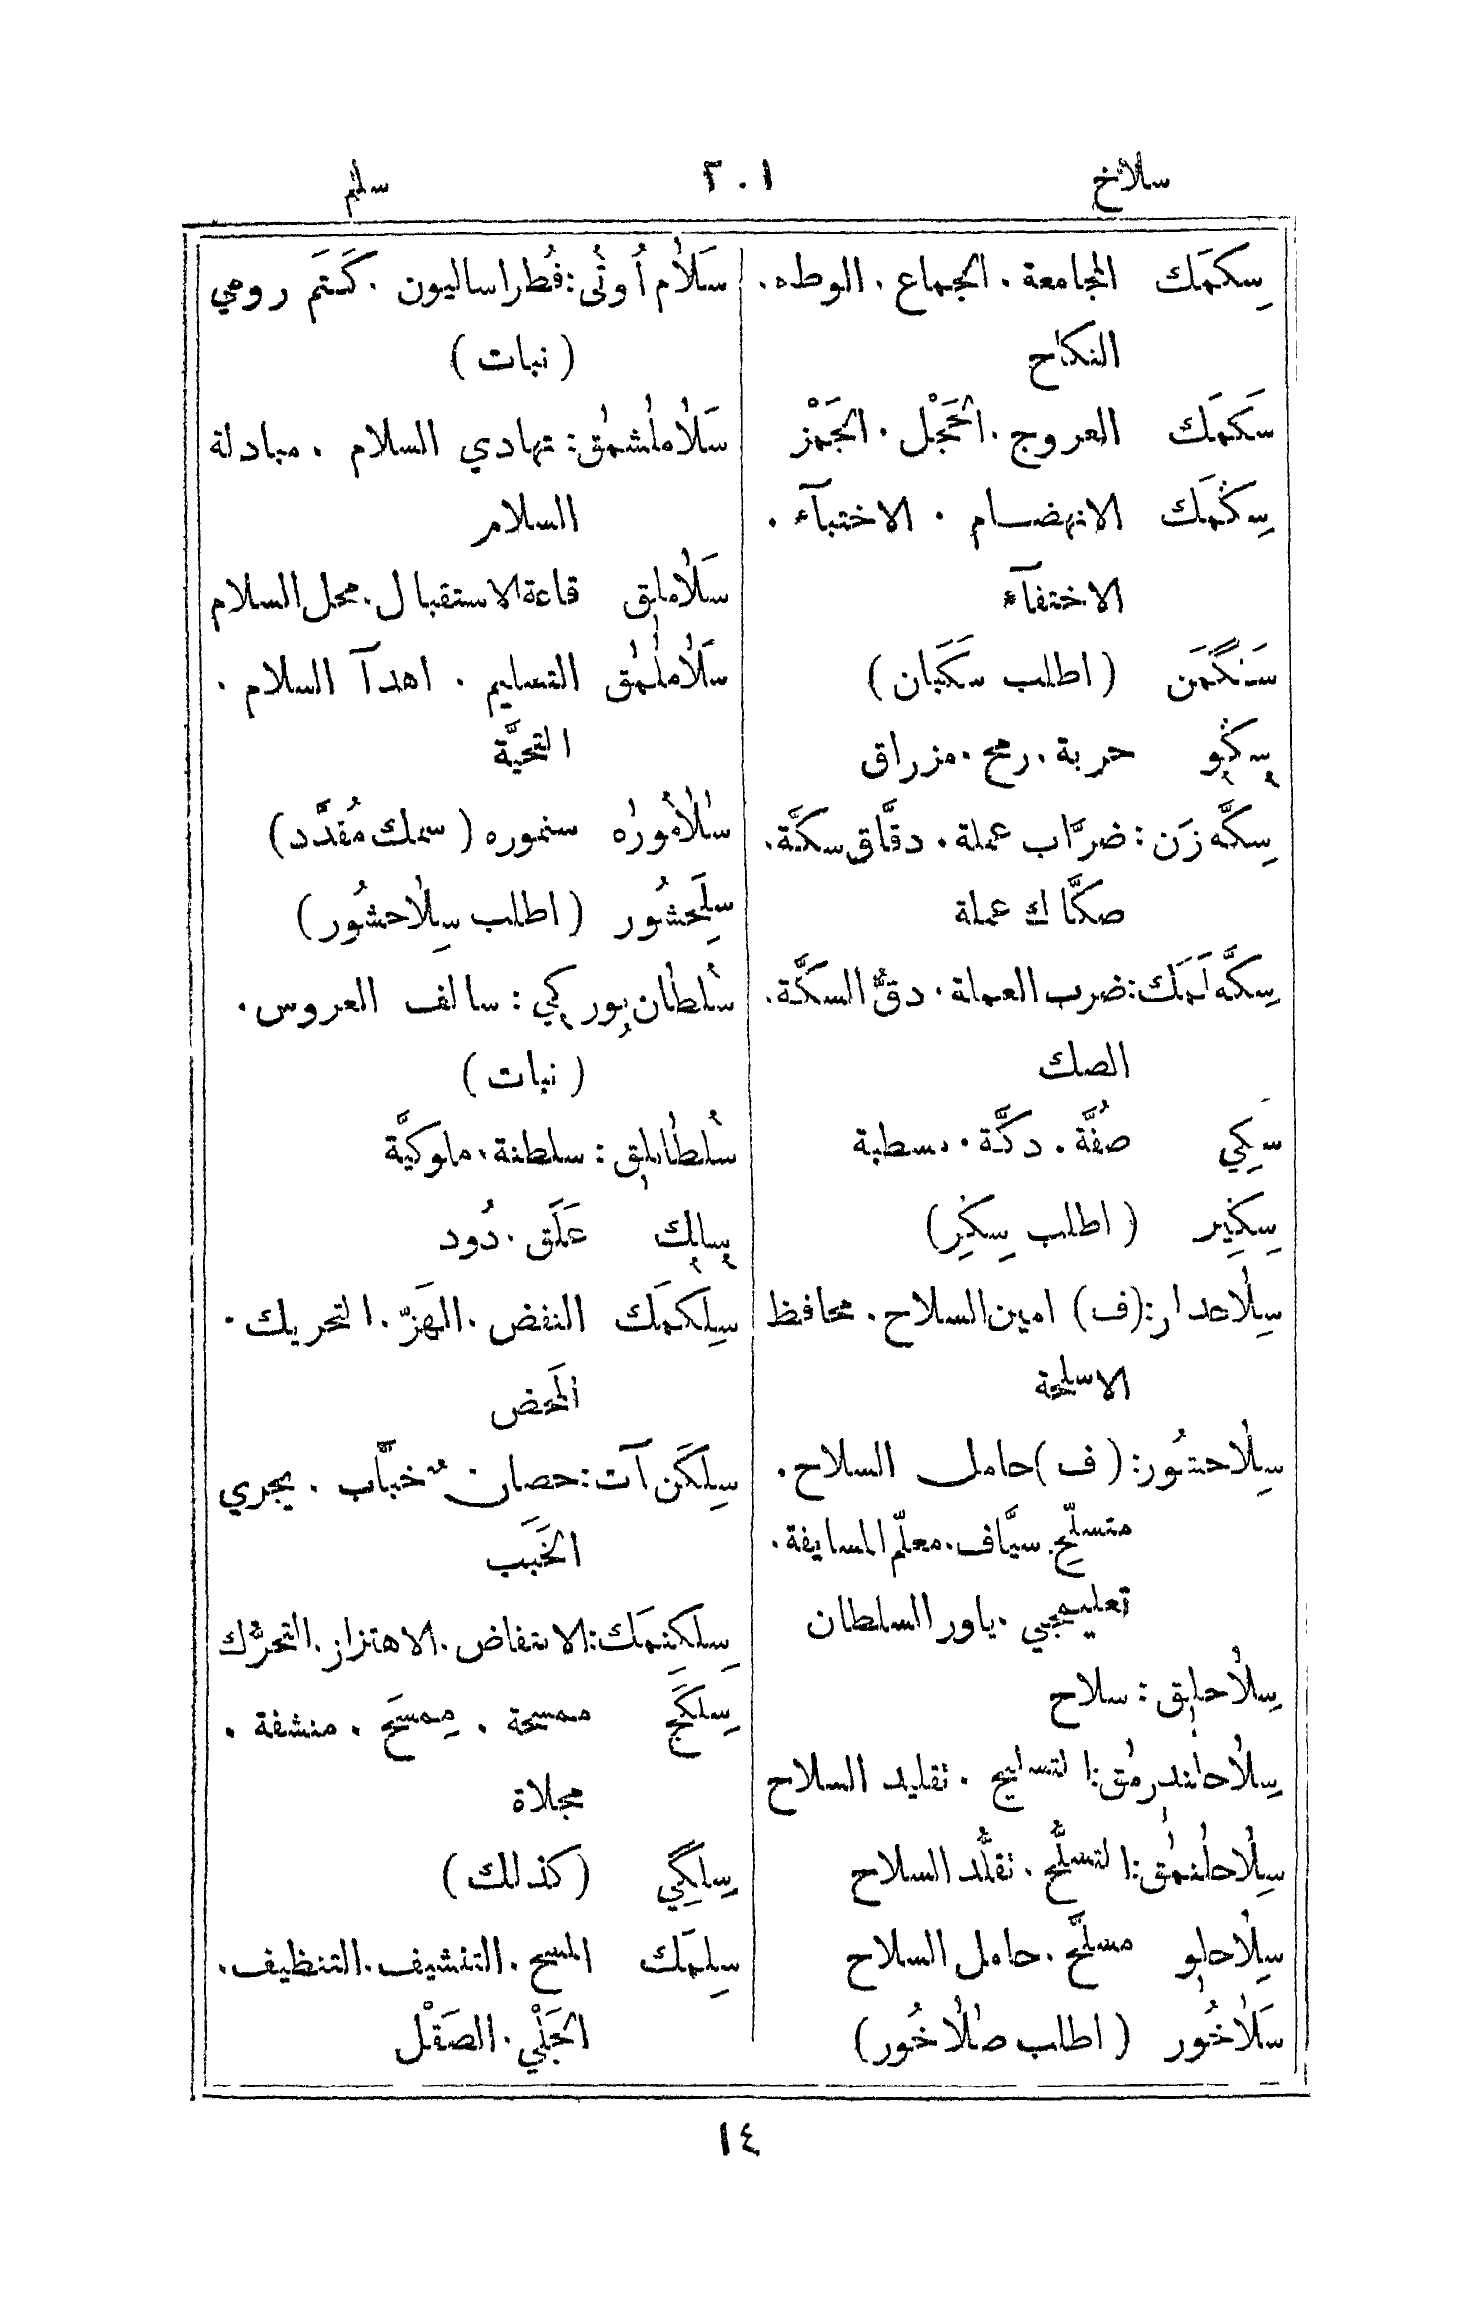 سلاخ ٢٠١ سلم
سِكمَك المجامعة . الجماع . الوطء .
النكاح
سَكمَك العروج . الحَجْل . الجَمْز
سِكْمَك الانهضام . الاختبآء .
الاختفآء
سَنكَمَن (اطلب سكَبان)
سِكُو حربة . رمح . مزراق
سِكَّه زَن : ضرَّاب عملة . دقَّاق سكَّة .
صكَّاك عملة
سِكَّه لَمَك : ضرب العملة . دقُّ السكَّة .
الصك
سَكي صفَّة . دكَّة . مسطبة
سِكِير (اطلب سِكِر)
سِلاحدار : (ف) امين السلاح . محافظ
الاسلحة
سِلاحشُور : (ف) حامل السلاح .
متسلّح . سيَّاف . معلّم المسايفة .
تعليمجي . ياور السلطان
سِلاحلِق : سلاح
سِلاحلندرمق : التسليح . تقليد السلاح
سِلاحلنمق : التسلُّح . تقلُّد السلاح
سِلاحلو مسلَّح . حامل السلاح
سَلاخُور (اطلب صالاخُور)
سَلام أُوتُى : فُطراساليون . كَتَم رومي
(نبات)
سَلاملشمق : تهادي السلام . مبادلة
السلام
سَلاملق قاعة الاستقبال . محل السلام
سَلاملمق التسليم . اهدآ السلام .
التحيَّة
سالامُوره سنموره (سمك مُقدَّد)
سِلَحشُور (اطلب سِلاحشُور)
سُلطان بوركي : سالف العروس .
(نبات)
سُلطانلق : سلطنة . ملوكيَّة
سِلِك عَلَق . دُود
سِلكمَك النفض . الهَزّ . التحريك .
المَخض
سِلكَن آت : حصان خبَّاب . يجري
الخَبَب
سِلكنمَك : الانتفاض . الاهتزاز . التحرُّك
سِلكَج ممسحة . مِمسَح . منشفة .
مجلاة
سِلكي (كذلك)
سِلمَك المسح . التنشيف . التنظيف .
الجَلْي . الصَقْل
١٤